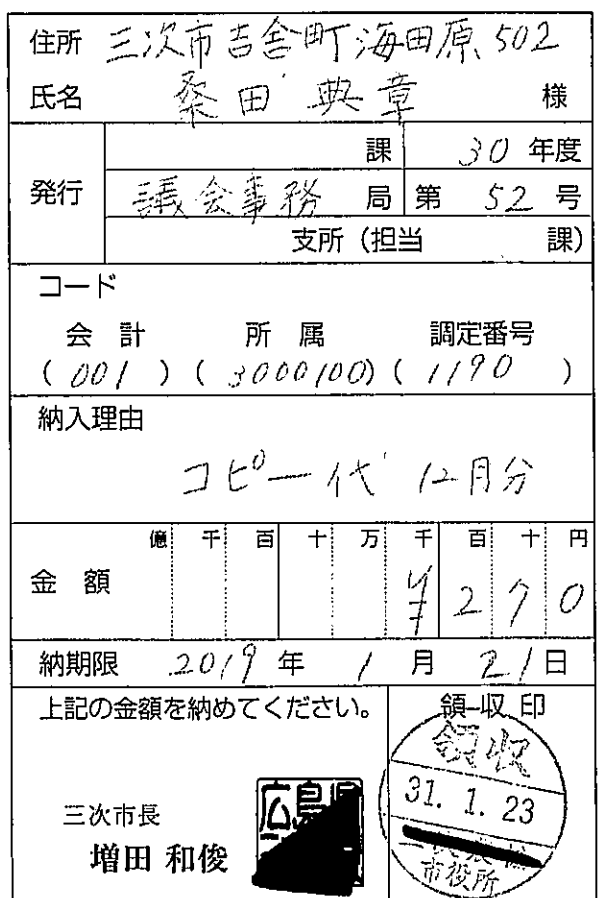 住所 三次市吉舎町海田原502
氏名 桑田 典章 様
発行
課 30 年度
議会事務 局 第 52 号
支所(担当 課)
コード
会計 所属 調定番号
( 001 ) ( 3000100) ( 1190 )
納入理由
コピー代 12月分
億 千 百 十 万 千 百 十 円
金額 ¥270
納期限 2019 年 1 月 21 日
上記の金額を納めてください。
三次市長
増田 和俊
広島
領収印
領収
31. 1. 23
市役所